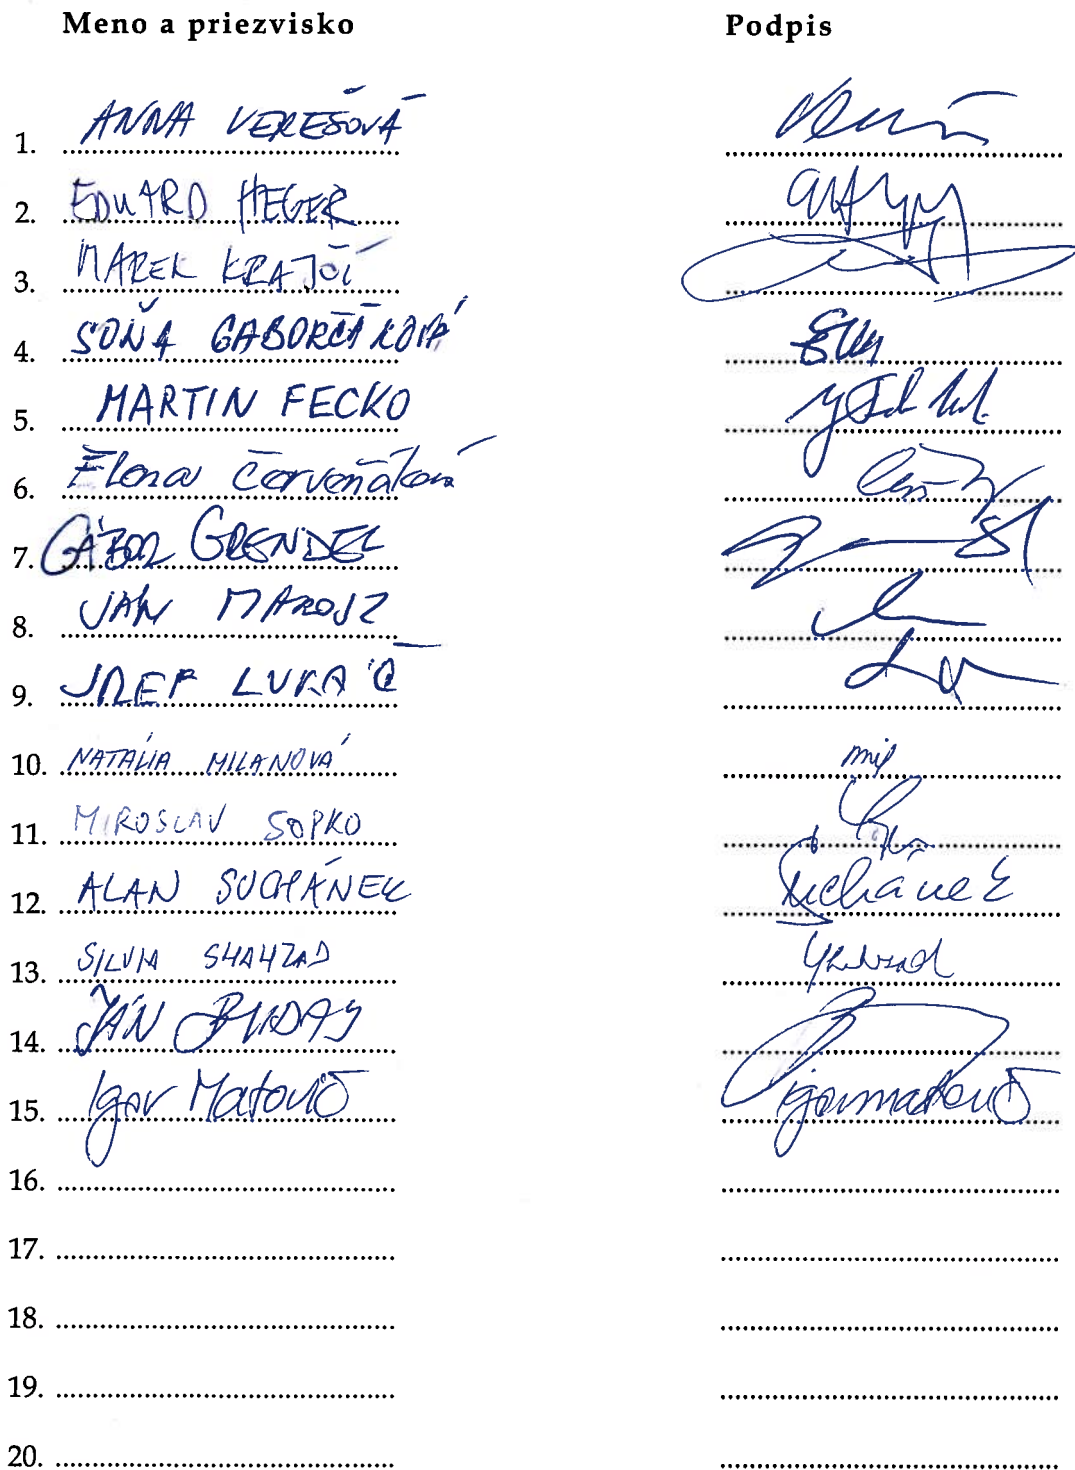 Meno a priezvisko Podpis
1. ANNA VEREŠOVÁ
2. EDUARD HEGER
3. MAREK KRAJČÍ
4. SOŇA GABORČÁKOVÁ
5. MARTIN FECKO
6. Elena Červeňáková
7. GÁBOR GRENDEL
8. JÁN MAROSZ
9. JOZEF LUKÁČ
10. NATÁLIA MILANOVÁ
11. MIROSLAV SOPKO
12. ALAN SUCHÁNEK Suchánek
13. SILVIA SHAHZAD Shahzad
14. JÁN BUDAY
15. Igor Matovič igormatovič
16.
17.
18.
19.
20.